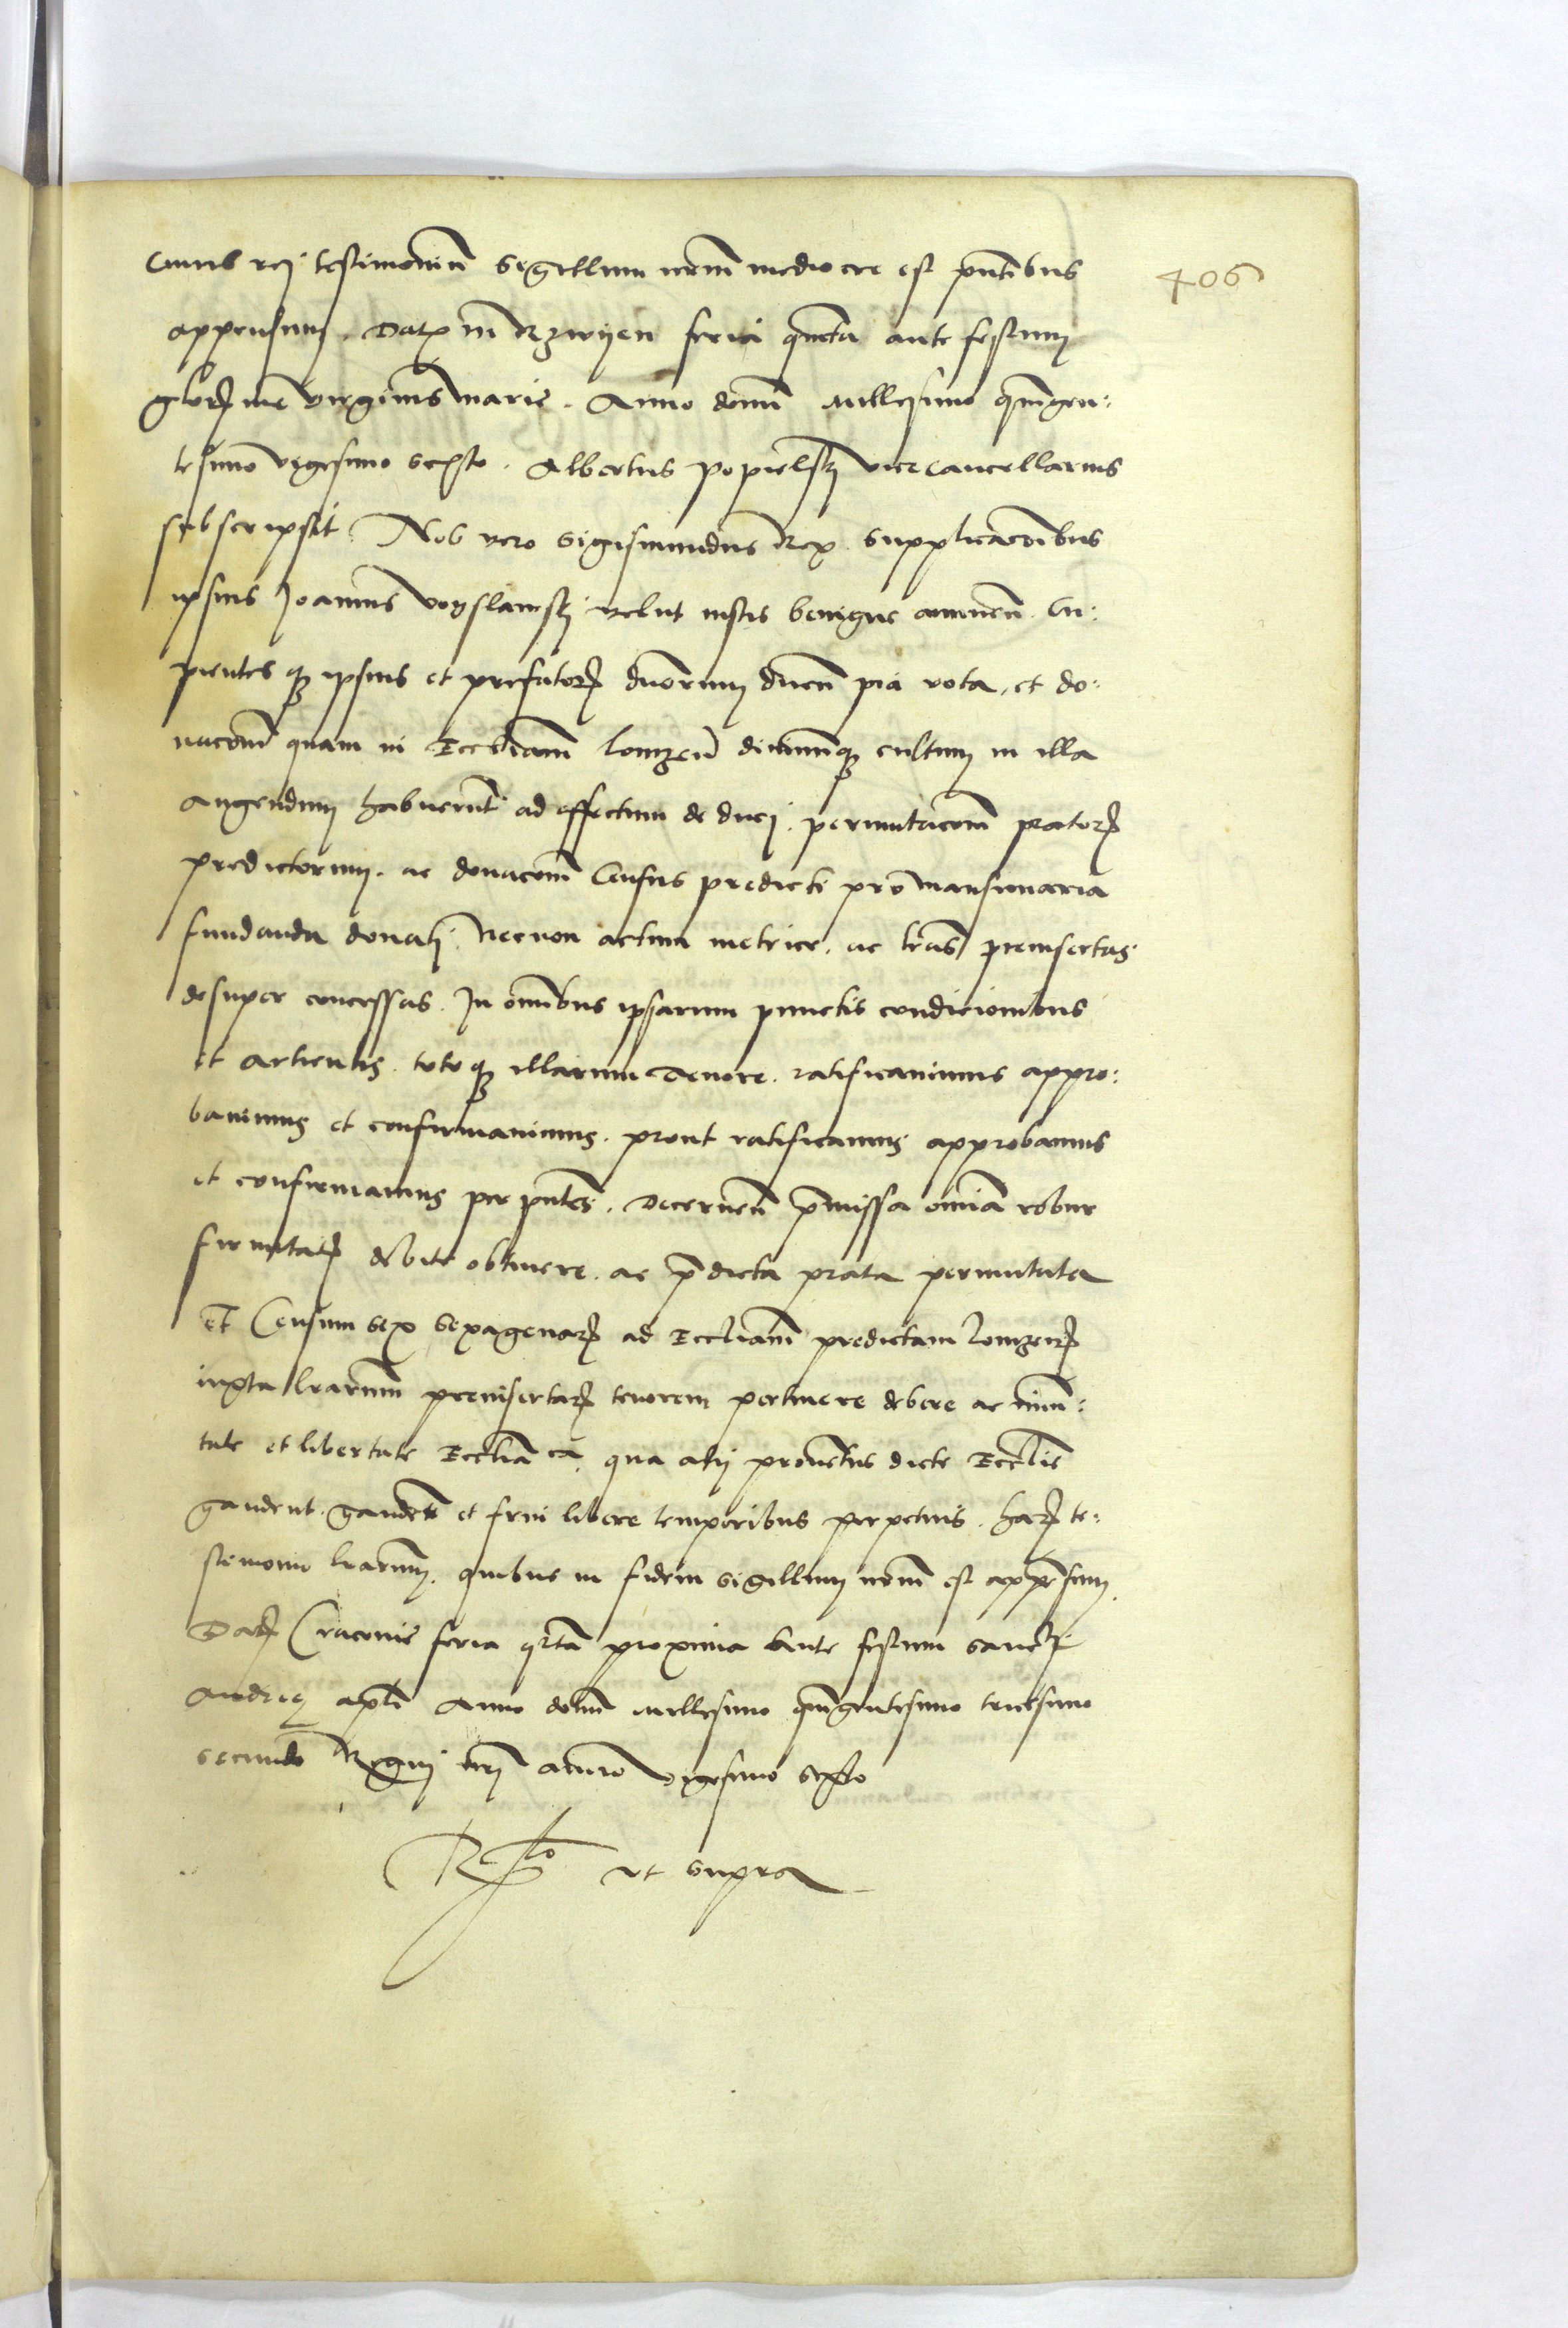 406
Cuius rej testimonium Sigellum nrm̄ mediocre est pn̄tibus
appensum. Datꝫ in Rzwyen feria quinta ante festum
gloriẹ virginis marie. Anno domi millesimo quingen:
tesimo vigesimo sexto. Albertus popielskj vicecancellarius
subscripsit Nos vero Sigismundus Rex. Supplicacōibus
ipsius Joannis voyslawskj velut iustis benigne annuen̄. Cu:
pientes qꝫ ipsius et prefatorꝫ duorum ducū pia vota, et do:
nacōm̄ quam in Eccliam lomzeñ diuinūqꝫ cultum in illa
augendum habuerūt ad effectum deducj. permutacōm̄ pratorꝫ
predictorum. ac donacōm̄ Census predicti pro mansionaria
fundanda donatj. Necnon actum metrice. ac lr̄as preinsertas
desuper concessas. In om̄ibus ipsarum punctis condicionibus
et articulis. totoqꝫ illarum tenore. ratificauimus appro:
bauimus et confirmauimus. prout ratificamus approbamus
et confirmamus per pn̄tes. Decernen̄ p̄missa omnia robur
firmitatꝫ debite obtinere. ac p̄dicta prata permutata
Et Censum sex sexagenarꝫ ad Eccliam predictam lomzenꝫ
iuxta lrarum preinsertarꝫ tenorem pertinere debere ac imu̅:
tate et libertate Ecclia ea, qua alij prouentus dicte Ecclie
gaudent. gaudere et frui libere temporibus perpetuis. harꝫ te:
stimonio lrarum. quibus in fidem sigillum nrm̄ est appensum.
Datꝫ Cracouie feria qrta proxima ante festum sanctj
Andree apl̄i Anno domi millesimo quingentesimo tricesimo
secundo Regnj nrj anno vigesimo sexto
Rlo ut supra